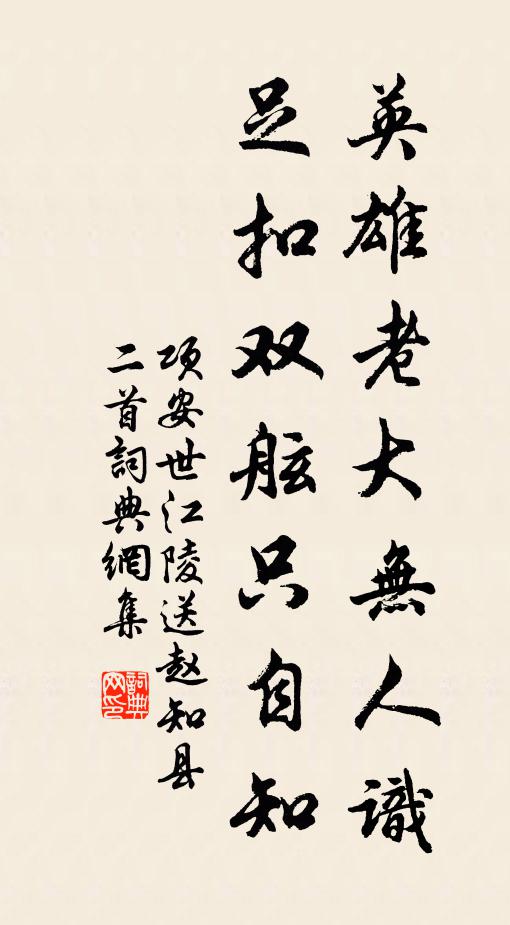 英雄老大無人識
足扣双舷只自知
项安世江陵送赵知县
二首詞典網集
詞典
网印